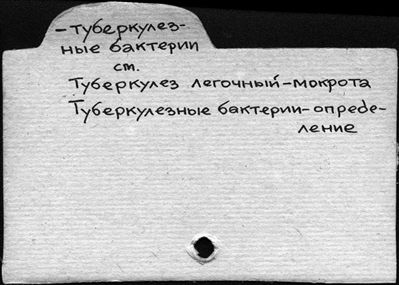 -туберкулез-
ные бактерии
см.
Туберкулез легочный-мокрота
Туберкулезные бактерии-опреде-
ление